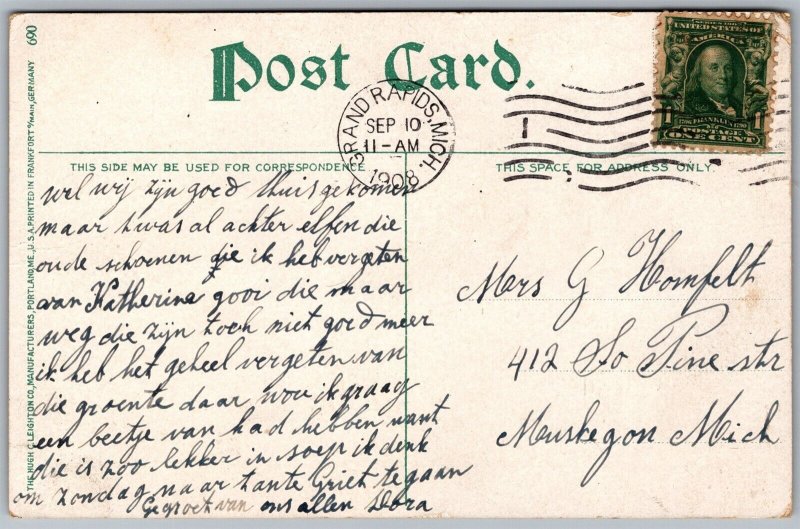 Post Card.
GRAND RAPIDS, MICH.
SEP 10
11-AM
1908
SERIES 1902
UNITED STATES OF
AMERICA
1 FRANKLIN 1
POSTAGE
ONE CENT
THIS SIDE MAY BE USED FOR CORRESPONDENCE
THIS SPACE FOR ADDRESS ONLY.
wel wij zijn goed thuis gekomen
maar t was al achter elfen die
oude schoenen die ik heb vergeten
van Katherina gooi die maar
weg die zijn toch niet goed meer
ik heb het geheel vergeten van
die groente daar wou ik graag
een beetje van had hebben want
die is zoo lekker in soep ik denk
om zondag naar tante Griet te gaan
Gegroet van ons allen Dora
Mrs G Homfelt
412 So Pine str
Muskegon Mich
THE HUGH C. LEIGHTON CO., MANUFACTURERS, PORTLAND, ME., U.S.A. PRINTED IN FRANKFORT o/MAIN, GERMANY 690